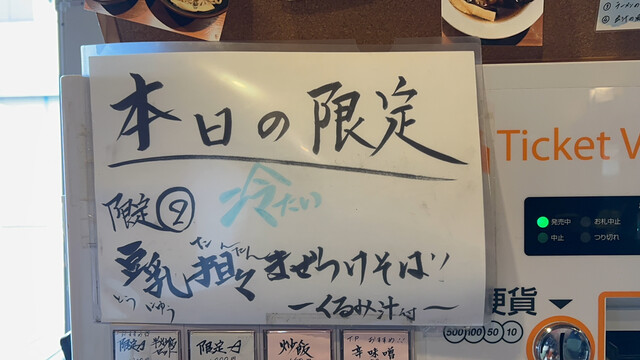 本日の限定
限定② 冷たい
豆乳担々まぜつけそば!!
とうにゅう たんたん
〜くるみ汁付〜
Ticket V
発売中 お札中止
中止 つり切れ
硬貨
500 100 50 10
限定
炒飯
辛味噌